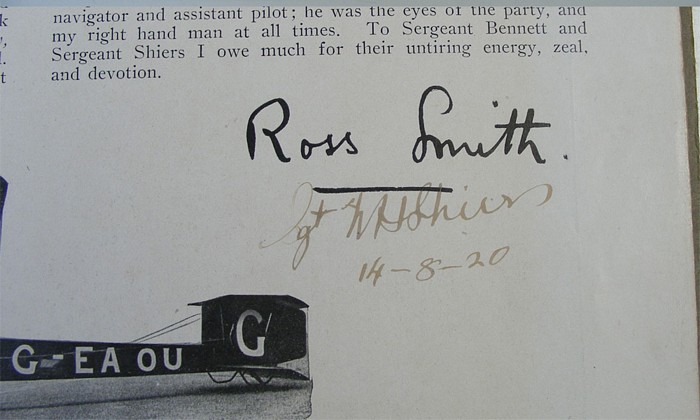 navigator and assistant pilot; he was the eyes of the party, and
k my right hand man at all times. To Sergeant Bennett and
Sergeant Shiers I owe much for their untiring energy, zeal,
t and devotion.
Ross Smith.
Sgt W H Shiers
14-8-20
G
G-EAOU